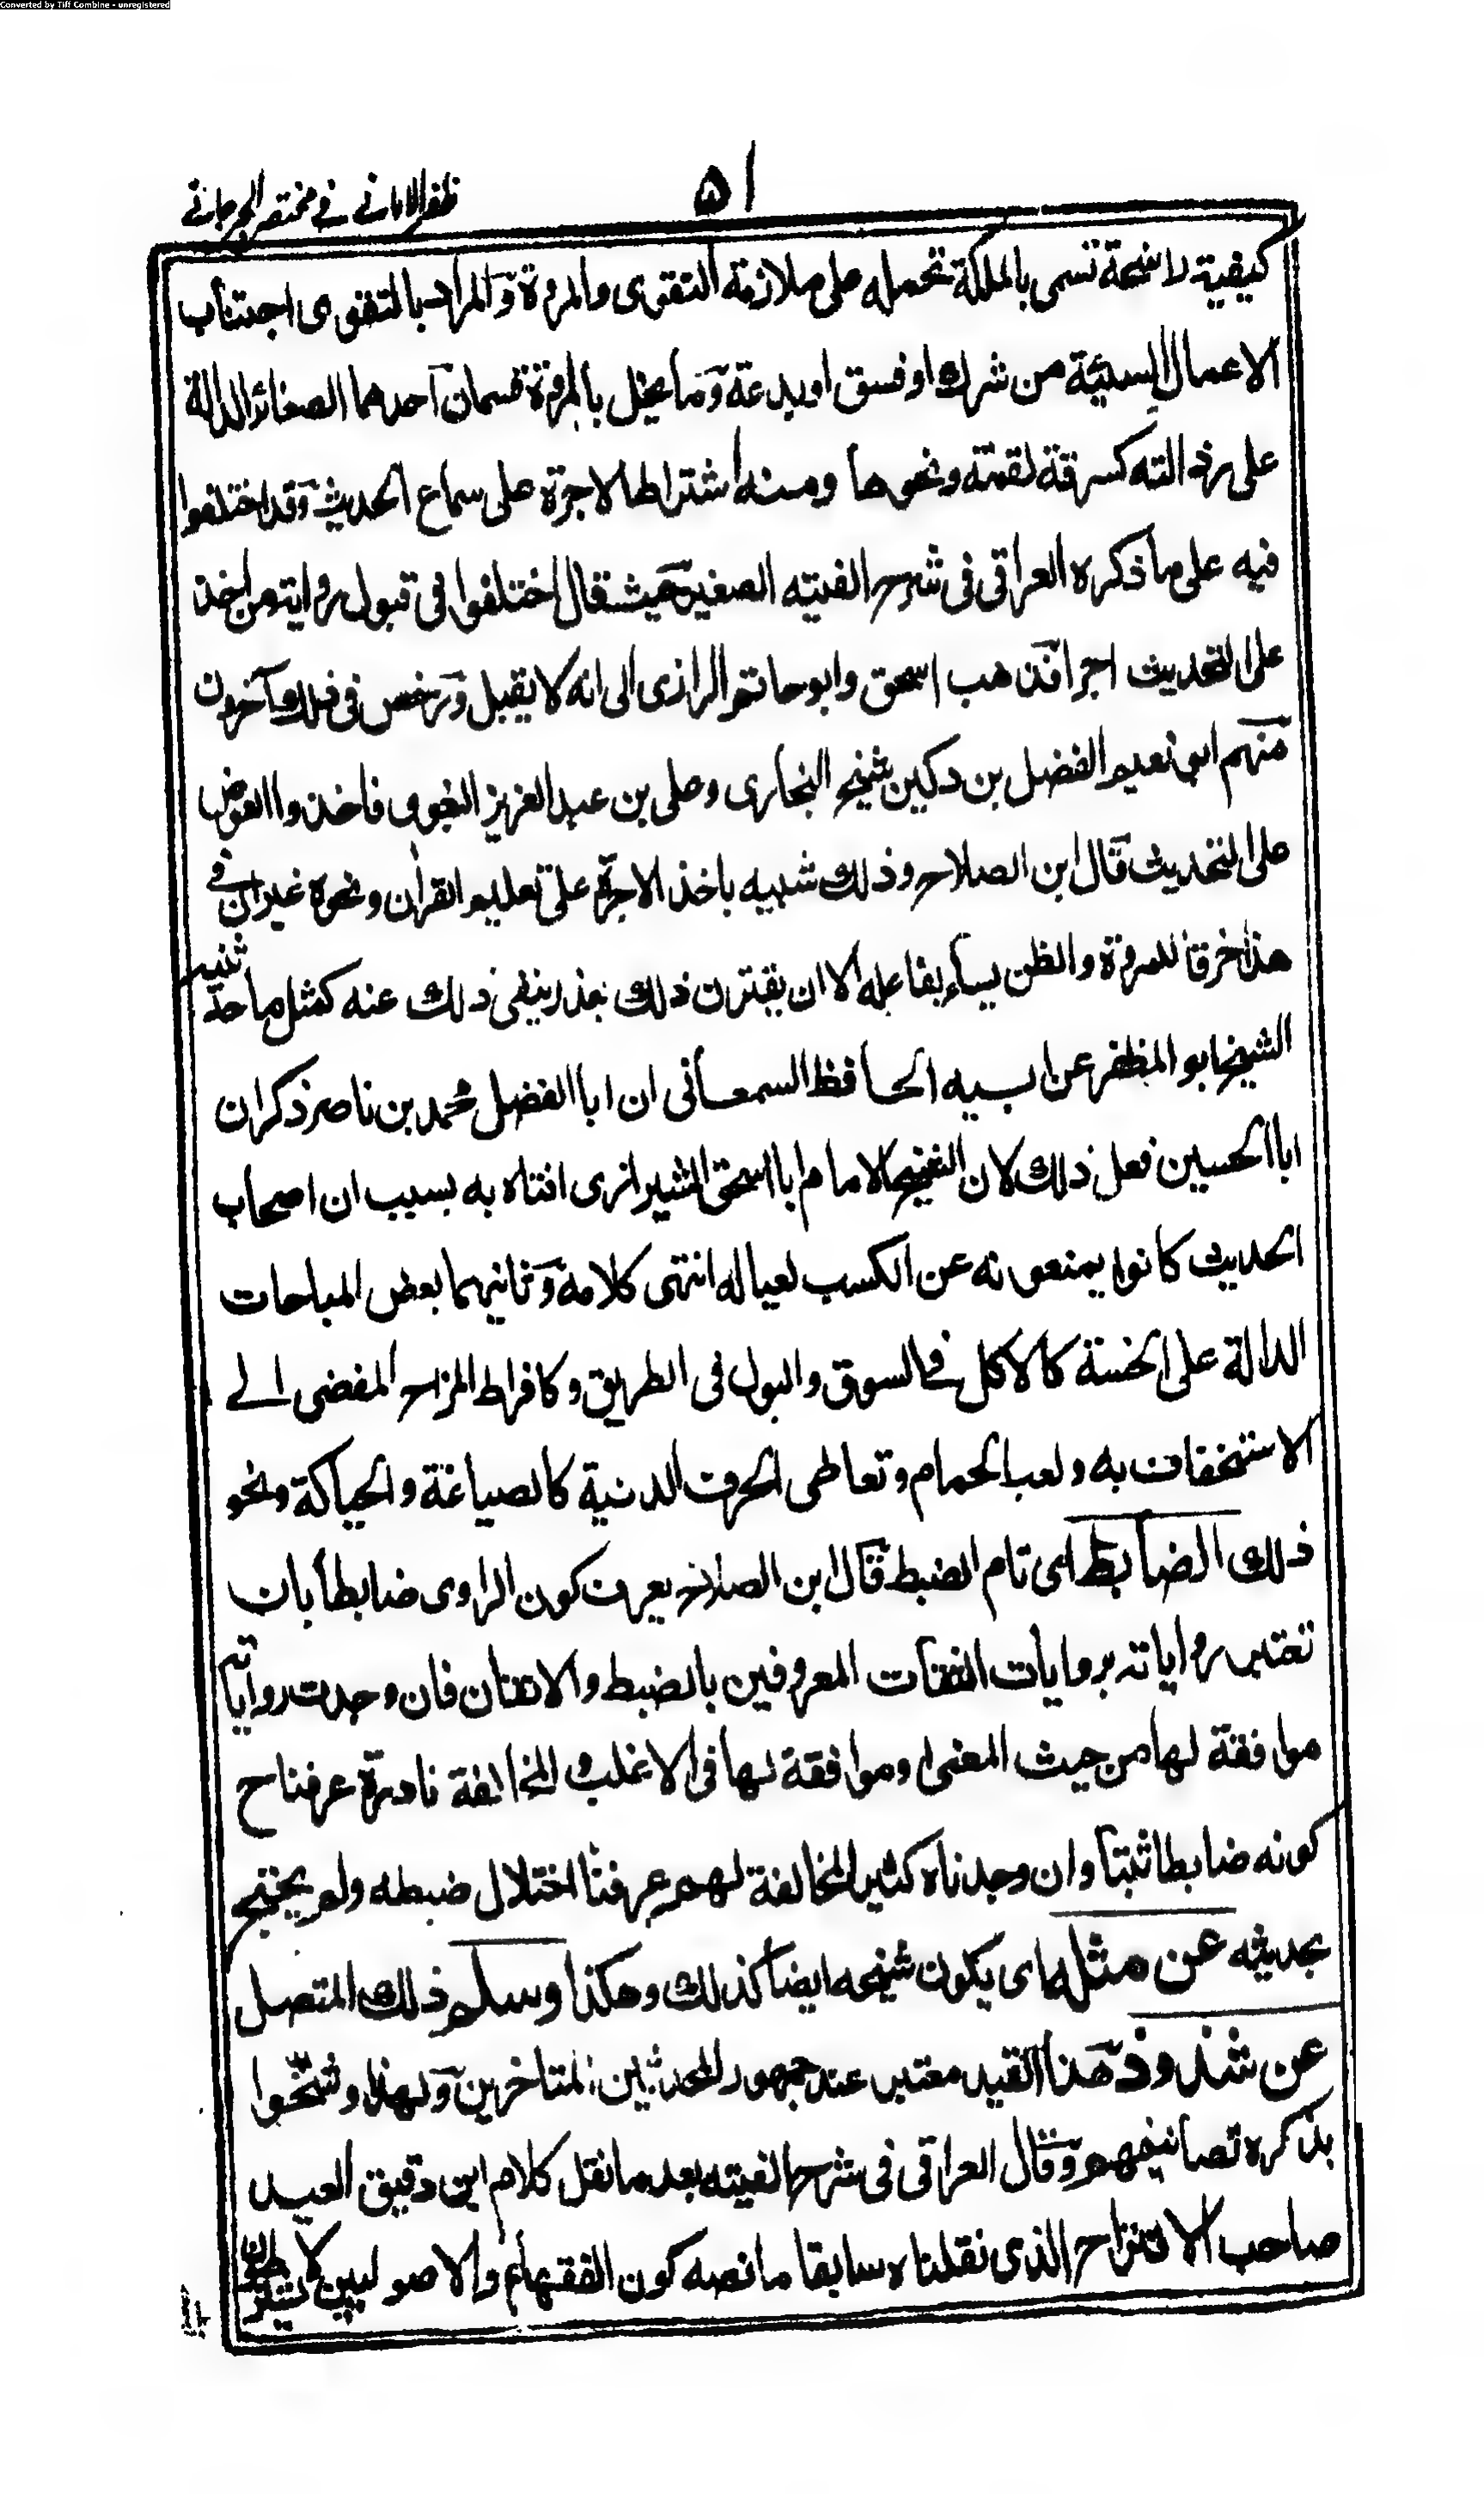 Converted by Tiff Combine - unregistered
٥١
ظفر الامانی فی مختصر الجرجانی
كيفية راسخة تسمى بالملكة تحمله على ملازمة التقوى والمروة والمراد بالتقوى اجتناب
الاعمال السيئة من شرك او فسق او بدعة وما يخل بالمروة قسمان احدهما الصغائر الدالة
على رذالته كسرقة لقمة ونحوها ومنه اشتراط الاجرة على سماع الحديث وقد اختلفوا
فيه على ما ذكره العراقي في شرح الفيته الصغير حيث قال اختلفوا في قبول رواية من اخذ
على التحديث اجرا فذهب اسحق وابو حاتم الرازى الى انه لا يقبل ورخص في ذلك آخرون
منهم ابو نعيم الفضل بن دكين شيخ البخارى وعلى بن عبد العزيز البغوى فاخذوا العوض
على التحديث قال ابن الصلاح وذلك شبيه باخذ الاجرة على تعليم القرآن ونحوه غير ان في
هذا خرقا للمروة والظن يساء بفاعله الا ان يقترن ذلك بعذر ينفى ذلك عنه كمثل ما حدثنيه
الشيخ ابو المظفر عن ابيه الحافظ السمعاني ان ابا الفضل محمد بن ناصر ذكر ان
ابا الحسين فعل ذلك لان الشيخ الامام ابا اسحق الشيرازى افتاه به بسبب ان اصحاب
الحديث كانوا يمنعونه عن الكسب لعياله انتهى كلامه وثانيهما بعض المباحات
الدالة على الخسة كالاكل في السوق والبول في الطريق وكافراط المزاح المفضى الى
الاستخفاف به ولعب الحمام وتعاطى الحرف الدنية كالصياغة والحياكة ونحو
ذلك الضابط اى تام الضبط قال ابن الصلاح يعرف كون الراوى ضابطا بان
تعتبر رواياته بروايات الثقات المعروفين بالضبط والاتقان فان وجدت رواياته
موافقة لها من حيث المعنى او موافقة لها في الاغلب والمخالفة نادرة عرفنا ح
كونه ضابطا ثبتا وان وجدناه كثير المخالفة لهم عرفنا اختلال ضبطه ولم يحتج
بحديثه عن مثله اى يكون شيخه ايضا كذلك وهكذا وسلم ذلك المتصل
عن شذوذ هذا القيد معتبر عند جمهور المحدثين المتاخرين ولهذا وشّحوا
بذكره تصانيفهم وقال العراقي في شرح الفيته بعد ما نقل كلام ابن دقيق العيد
صاحب الاقتراح الذى نقلناه سابقا ما نصه كون الفقهاء والاصوليين لا يشترطان